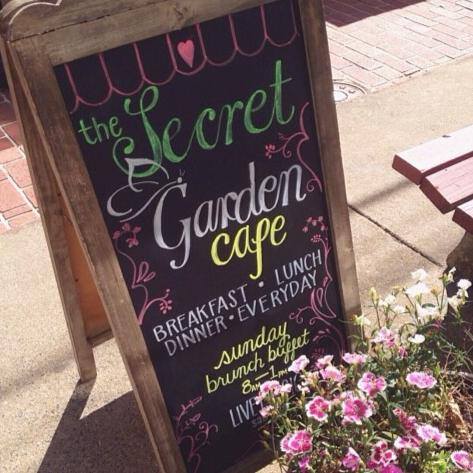 the Secret
Garden
cafe
BREAKFAST • LUNCH
DINNER • EVERYDAY
sunday
brunch buffet
8am - 1pm
LIVE